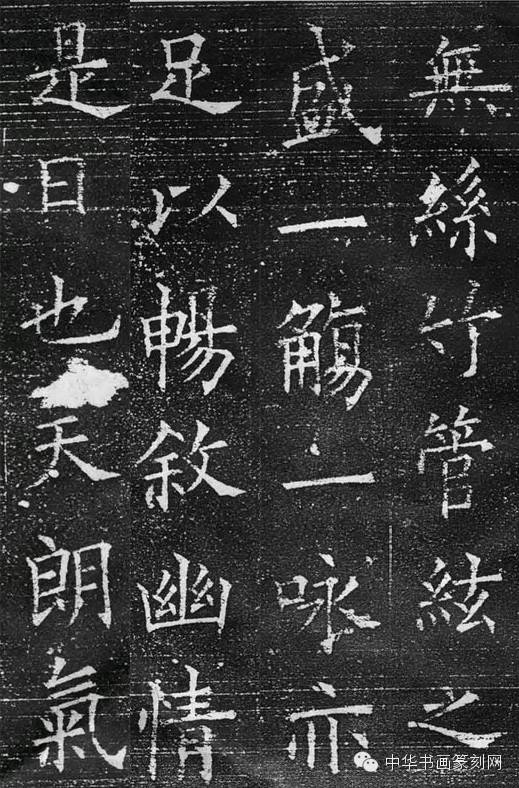 無絲竹管絃之
盛一觴一咏亦
足以暢敘幽情
是日也天朗氣
中华书画篆刻网